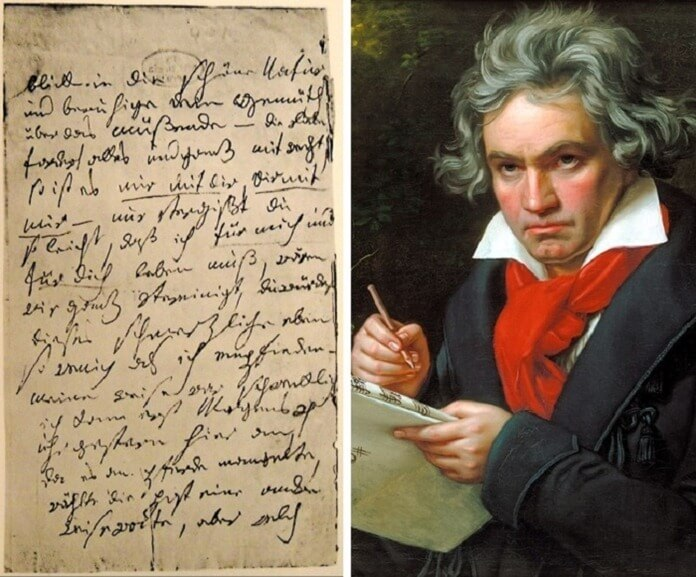 blick in die schöne Natur
und beruhige dein Gemüth
über das müßende – die Liebe
fordert alles und ganz mit recht,
so ist es mir mit dir, dir mit
mir – nur vergißt du
so leicht, daß ich für mich und
für dich leben muß, wären
wir ganz vereinigt, du würdest
dieses schmerzliche eben
so wenig als ich empfinden –
meine reise war schrecklich
ich kam erst Morgens
uhr gestern hier an,
da es an pferde mangelte,
wählte die Post eine andre
reiseroute, aber welch